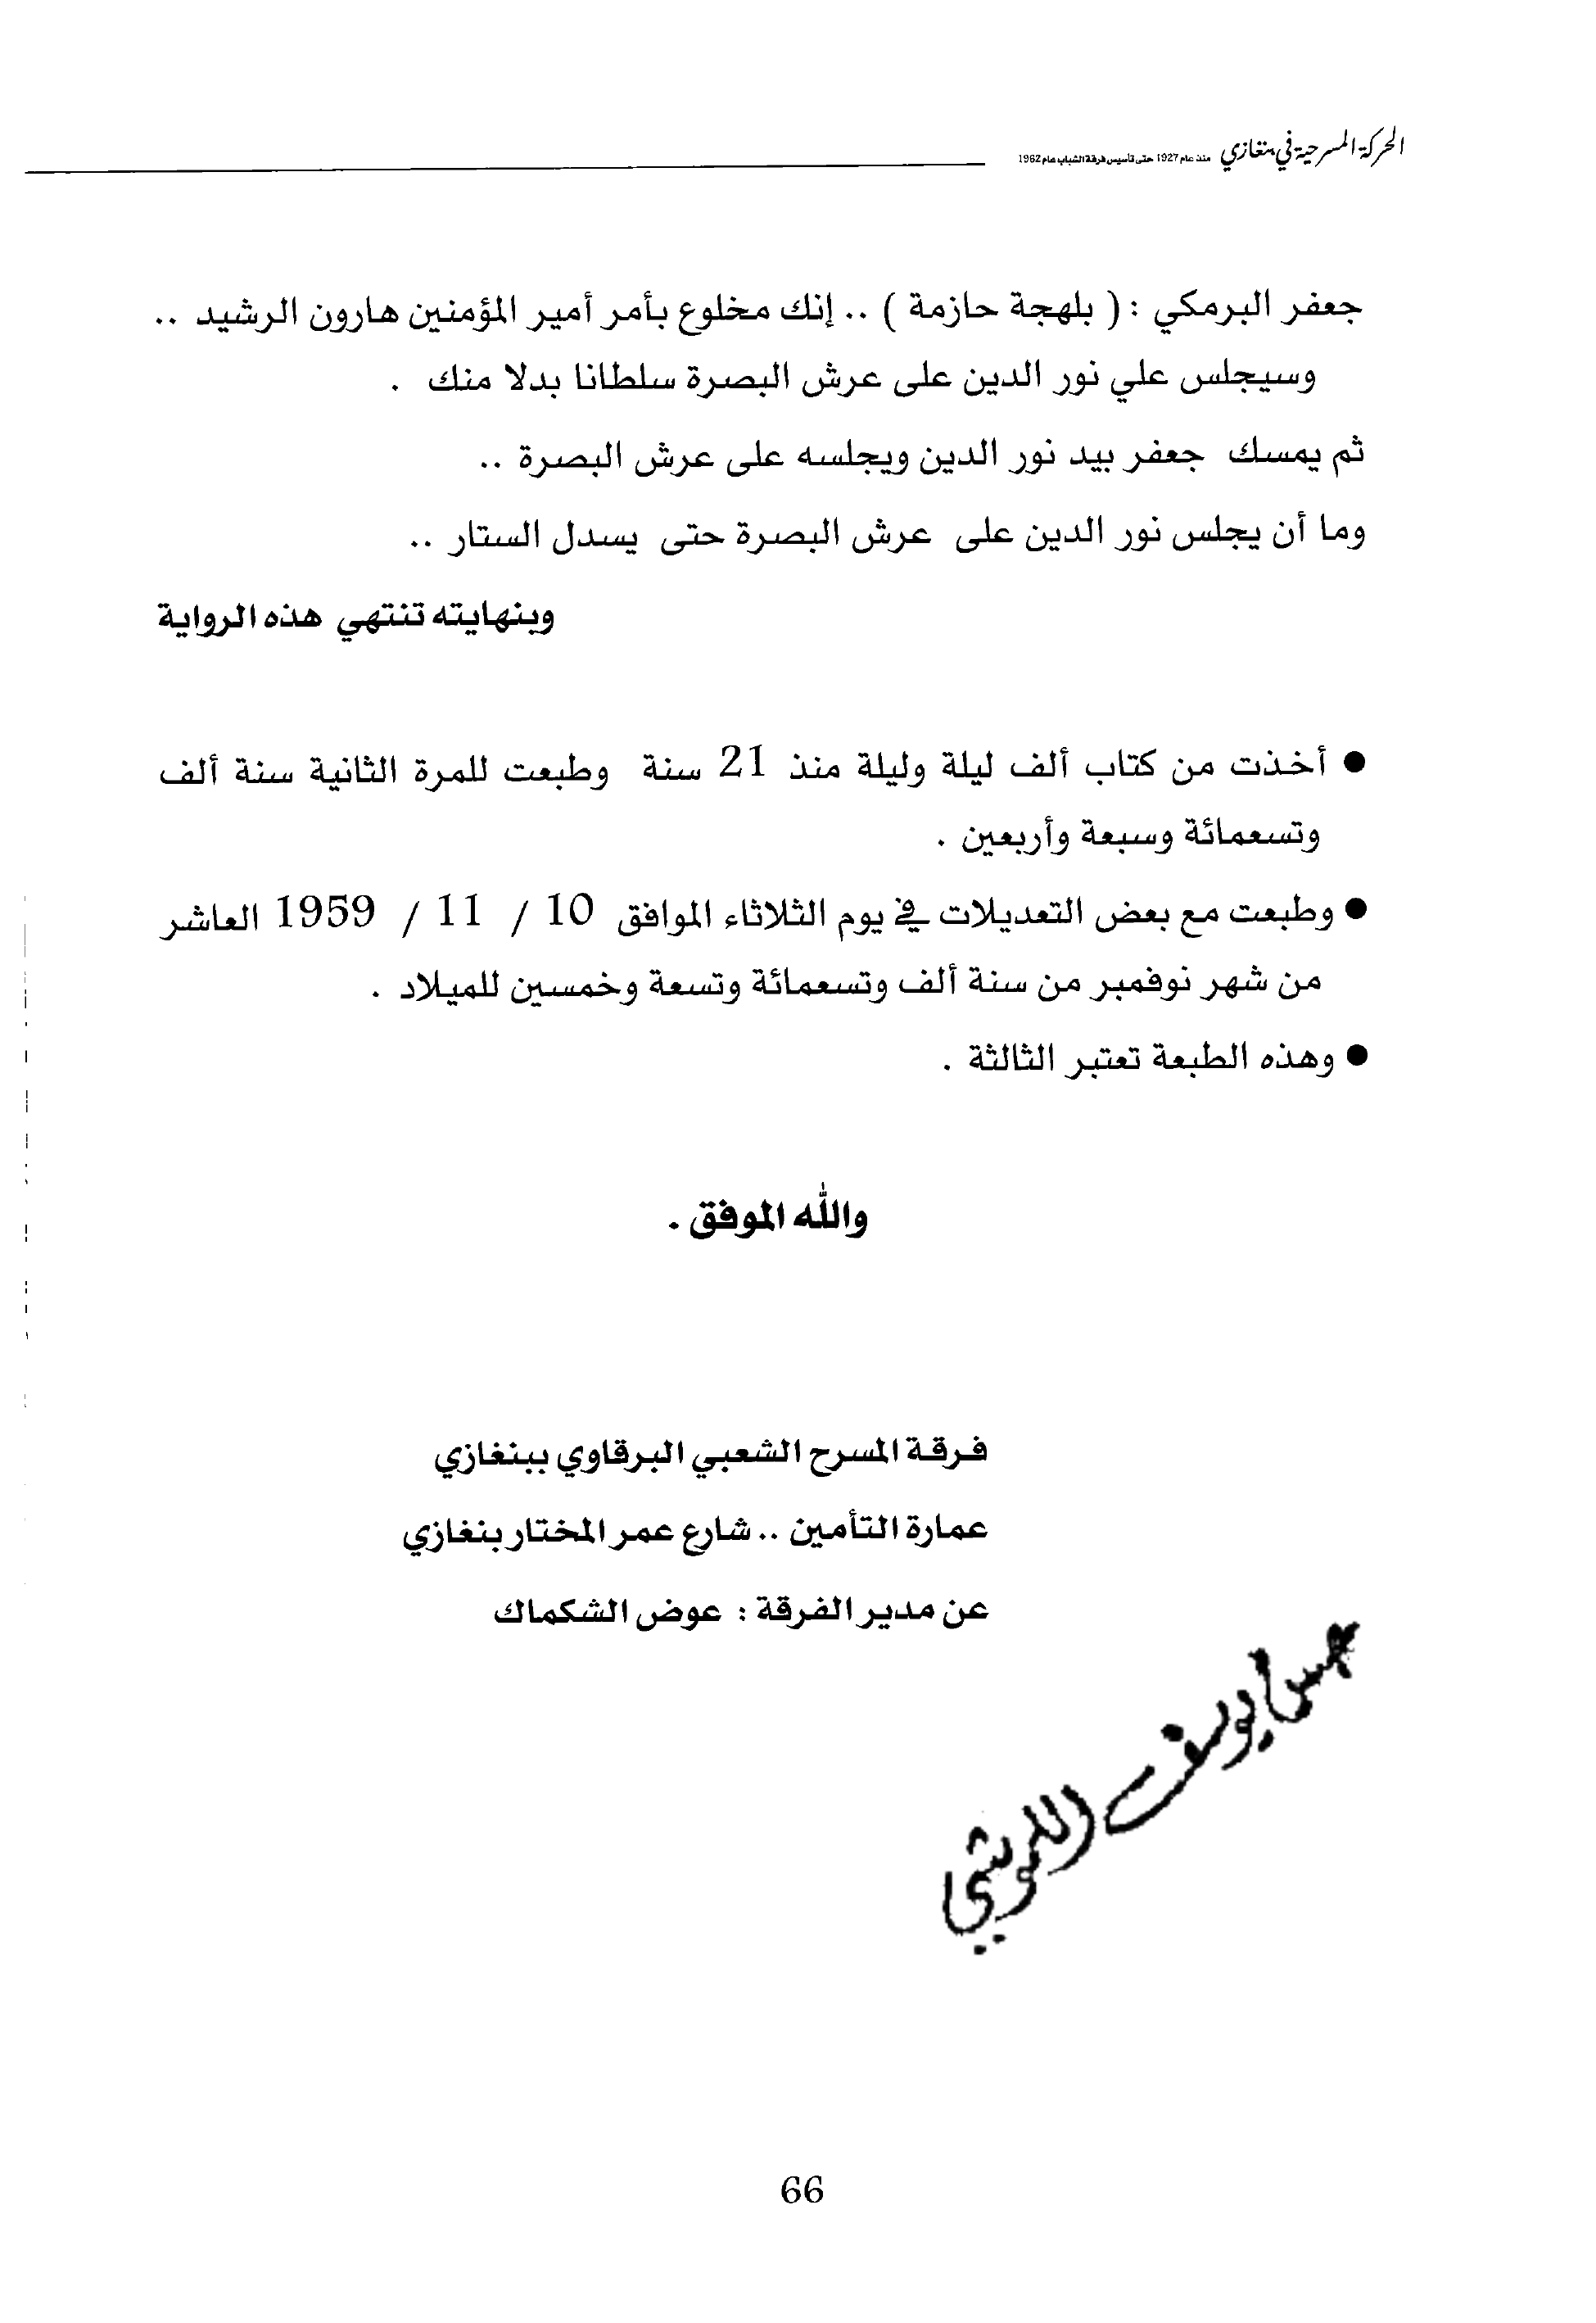 الحركة المسرحية في بنغازي منذ عام 1927 حتى تأسيس فرقة الشباب عام 1962
جعفر البرمكي : ( بلهجة حازمة ) .. إنك مخلوع بأمر أمير المؤمنين هارون الرشيد ..
وسيجلس علي نور الدين على عرش البصرة سلطانا بدلا منك .
ثم يمسك جعفر بيد نور الدين ويجلسه على عرش البصرة ..
وما أن يجلس نور الدين على عرش البصرة حتى يسدل الستار ..
وبنهايته تنتهي هذه الرواية
● أخذت من كتاب ألف ليلة وليلة منذ 21 سنة وطبعت للمرة الثانية سنة ألف
وتسعمائة وسبعة وأربعين .
● وطبعت مع بعض التعديلات في يوم الثلاثاء الموافق 10 / 11 / 1959 العاشر
من شهر نوفمبر من سنة ألف وتسعمائة وتسعة وخمسين للميلاد .
● وهذه الطبعة تعتبر الثالثة .
والله الموفق .
فرقة المسرح الشعبي البرقاوي ببنغازي
عمارة التأمين .. شارع عمر المختار بنغازي
عن مدير الفرقة : عوض الشكماك
يوسف
66